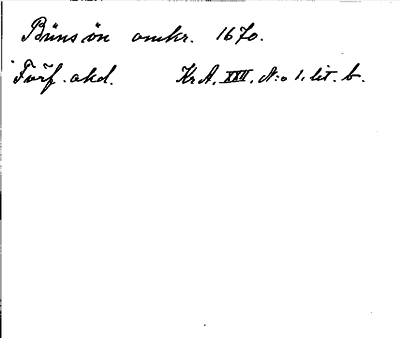 Büns ön omkr. 1670.
Förf. okd. Kr A, XXII, N:o 1, lit. b.